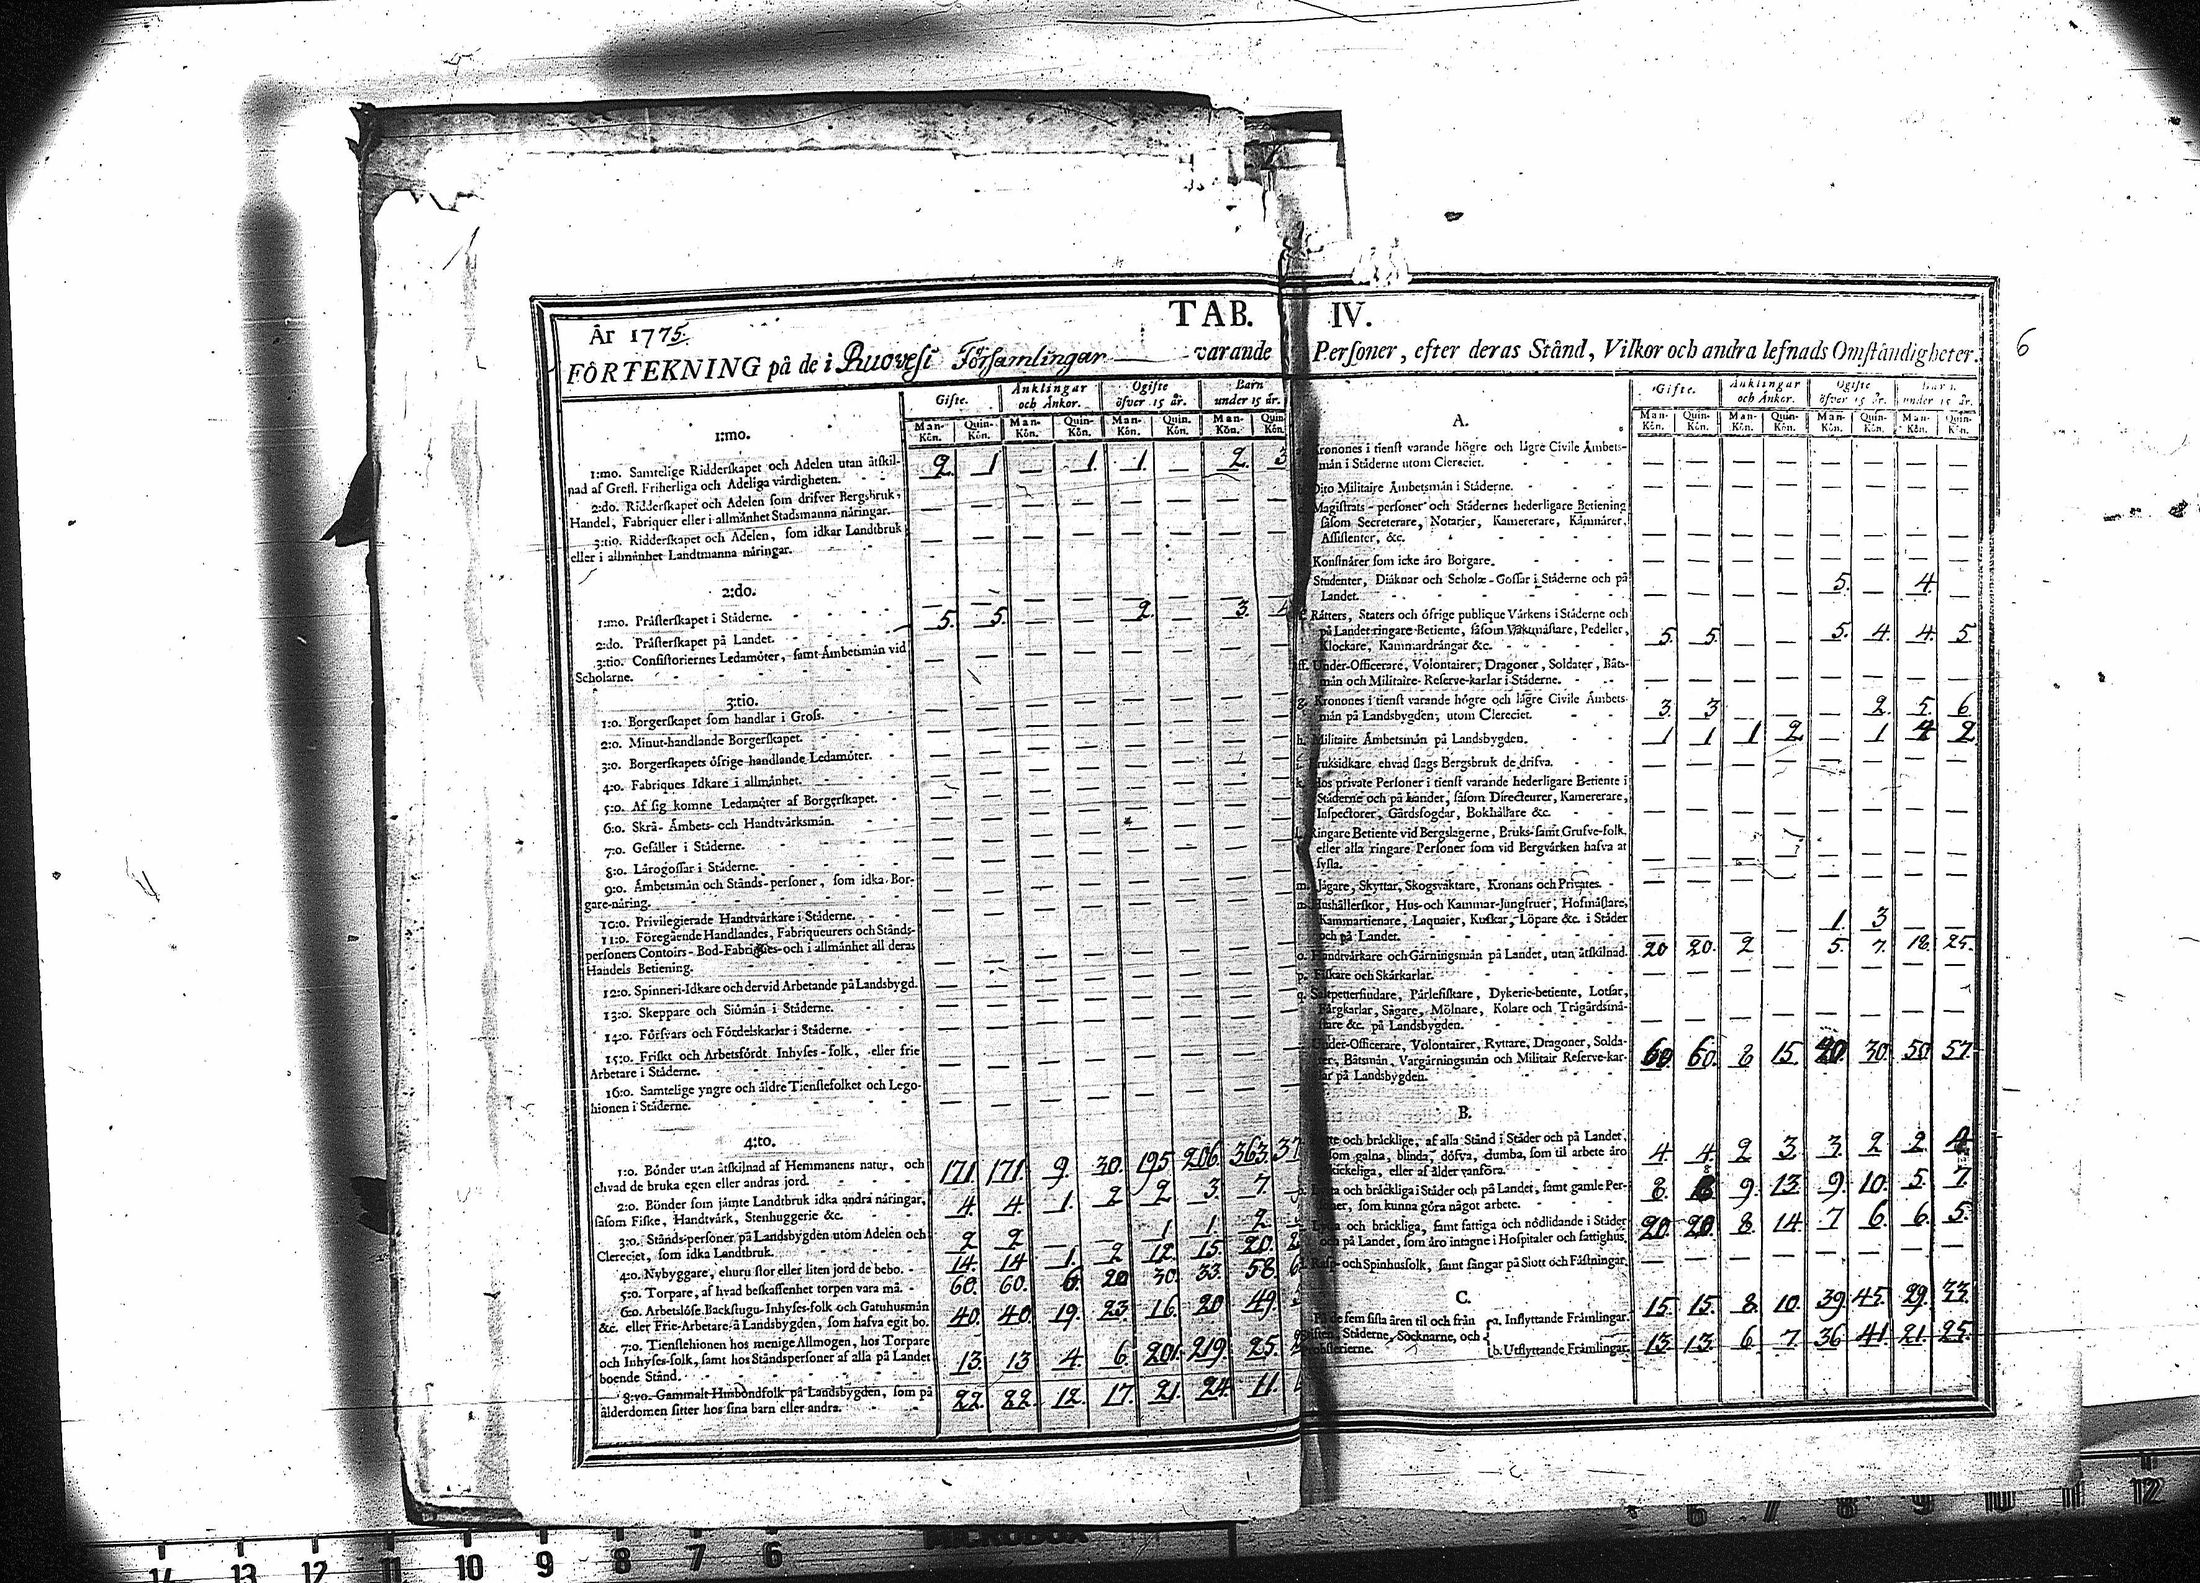 TAB. IV.
År 1775.
FÖRTEKNING på de i Ruovesi Församlingar varande Personer, efter deras Stånd, Vilkor och andra lefnads Omståndigheter.
6
Gifte. Änklingar och Änkor. Ogifte öfver 15 år. Barn under 15 år.
Man-Kön. Quin-Kön. Man-Kön. Quin-Kön. Man-Kön. Quin-Kön. Man-Kön. Quin-Kön.
1:mo.
1:mo. Samtelige Ridderskapet och Adelen utan åtskil-
nad af Grefl. Friherliga och Adeliga värdigheten. 2. 1 — 1. 1. — 2. 3
2:do. Ridderskapet och Adelen som drifver Bergsbruk,
Handel, Fabriquer eller i allmånhet Stadsmanna nåringar. — — — — — — —
3:tio. Ridderskapet och Adelen, som idkar Landtbruk
eller i allmånhet Landtmanna nåringar. — — — — — — —
2:do.
1:mo. Pråsterskapet i Ståderne. — — — — — — —
2:do. Pråsterskapet på Landet. 5. 5. — — 2. — 3.
3:tio. Consistoriernes Ledamöter, samt Åmbetsmån vid
Scholarne. — — — — — — —
3:tio.
1:o. Borgerskapet som handlar i Gross. — — — — — — —
2:o. Minut-handlande Borgerskapet. — — — — — — —
3:o. Borgerskapets öfrige handlande Ledamöter. — — — — — — —
4:o. Fabriques Idkare i allmånhet. — — — — — — —
5:o. Af sig komne Ledamöter af Borgerskapet. — — — — — — —
6:o. Skrå- Åmbets- och Handtvårksmån. — — — — — — —
7:o. Gesåller i Ståderne. — — — — — — —
8:o. Lårogossar i Ståderne. — — — — — — —
9:o. Åmbetsmån och Stånds-personer, som idka Bor-
gare-nåring. — — — — — — —
10:o. Privilegierade Handtvårkare i Ståderne. — — — — — — —
11:o. Föregående Handlandes, Fabriqueurers och Stånds-
personers Contoirs- Bod- Fabriques- och i allmånhet all deras
Handels Betiening. — — — — — — —
12:o. Spinneri-Idkare och dervid Arbetande på Landsbygd. — — — — — — —
13:o. Skeppare och Siömån i Ståderne. — — — — — — —
14:o. Försvars och Fördelskarlar i Ståderne. — — — — — — —
15:o. Friskt och Arbetsfördt Inhyses-folk, eller frie
Arbetare i Ståderne. — — — — — — —
16:o. Samtelige yngre och åldre Tienstefolket och Lego-
hionen i Ståderne. — — — — — — —
4:to.
1:o. Bönder utan åtskilnad af Hemmanens natur, och
ehvad de bruka egen eller andras jord. 171. 171. 9. 30. 195 206. 363. 37
2:o. Bönder som jåmte Landtbruk idka andra nåringar,
såsom Fiske, Handtvårk, Stenhuggerie &c. 4. 4 1. 2 2 3. 7.
3:o. Stånds-personer på Landsbygden utom Adelen och
Clereciet, som idka Landtbruk. 2 2 — — 1 1. 2
4:o. Nybyggare, ehuru stor eller liten jord de bebo. 14. 14 1. 2 12. 15. 20. 2
5:o. Torpare, af hvad beskaffenhet torpen vara må. 60. 60. 6. 20 30. 33. 58. 6
6:o. Arbetslöse Backstugu- Inhyses-folk och Gatuhusmån
&c. eller Frie-Arbetare å Landsbygden, som hafva egit bo. 40. 40. 19. 23. 16. 20 49.
7:o. Tienstehionen hos menige Allmogen, hos Torpare
och Inhyses-folk, samt hos Ståndspersoner af alla på Landet
boende Stånd. 13. 13 4. 6. 201. 219. 25.
8:vo. Gammalt Husbondfolk på Landsbygden, som på
ålderdomen sitter hos sina barn eller andra. 22. 22. 12. 17. 21. 24 11.
Gifte. Änklingar och Änkor. Ogifte öfver 15 år. Barn under 15 år.
Man-Kön. Quin-Kön. Man-Kön. Quin-Kön. Man-Kön. Quin-Kön. Man-Kön. Quin-Kön.
A.
Kronones i tienst varande högre och lågre Civile Åmbets-
mån i Ståderne utom Clereciet. — — — — — — — —
Dito Militaire Åmbetsmån i Ståderne. — — — — — — — —
Magistrats-personer och Stådernes hederligare Betiening
såsom Secreterare, Notarier, Kamererare, Kåmnårer,
Assistenter, &c. — — — — — — — —
Konstnårer som icke åro Borgare. — — — — — — — —
Studenter, Diåknar och Scholæ-Gossar i Ståderne och på
Landet. — — — — 5. — 4. —
Råtters, Staters och öfrige publique Vårkens i Ståderne och
på Landet ringare Betiente, såsom Vaktmåstare, Pedeller,
Klockare, Kammardrångar &c. 5. 5. — — 5. 4. 4. 5
ff. Under-Officerare, Volontairer, Dragoner, Soldater, Båts-
mån och Militaire-Reserve-karlar i Ståderne. — — — — — — — —
g. Kronones i tienst varande högre och lågre Civile Åmbets-
mån på Landsbygden, utom Clereciet. 3. 3. — — — 2. 5. 6
h. Militaire Åmbetsmån på Landsbygden. 1 1 1 2. — 1 4 2
Bruksidkare, ehvad slags Bergsbruk de drifva. — — — — — — — —
k. Hos private Personer i tienst varande hederligare Betiente i
Ståderne och på Landet, såsom Directeurer, Kamererare,
Inspectorer, Gårdsfogdar, Bokhållare &c. — — — — — — — —
l. Ringare Betiente vid Bergslagerne, Bruks- samt Grufve-folk,
eller alla ringare Personer som vid Bergvårken hafva at
sysla. — — — — — — — —
m. Jågare, Skyttar, Skogsvaktare, Kronans och Privates. — — — — — — — —
n. Hushållerskor, Hus- och Kammar-Jungfruer, Hofmåstare,
Kammartienare, Laquaier, Kuskar, Löpare &c. i Ståder
och på Landet. — — — — 1. 3 — —
o. Handtvårkare och Gårningsmån på Landet, utan åtskilnad. 20 20. 2 5. 7. 18. 25.
p. Fiskare och Skårkarlar. — — — — — — — —
q. Salpetersiudare, Pårlefiskare, Dykerie-betiente, Lotsar,
Bårgkarlar, Sågare, Mölnare, Kolare och Trågårdsmå-
stare &c. på Landsbygden. — — — — — — — —
Under-Officerare, Volontairer, Ryttare, Dragoner, Solda-
ter, Båtsmån, Vargårningsmån och Militair Reserve-kar-
lar på Landsbygden. 60. 60. 8 15. 20. 30. 50. 57.
B.
och bråcklige, af alla Stånd i Ståder och på Landet,
som galna, blinda, döfva, dumba, som til arbete åro
oskickeliga, eller af ålder vanföra. 4. 4. 2 3. 3. 2 2.
och bråckliga i Ståder och på Landet, samt gamle Per-
soner, som kunna göra något arbete. 8. 8 9. 13. 9. 10. 5. 7.
och bråckliga, samt fattiga och nödlidande i Ståder
och på Landet, som åro intagne i Hospitaler och fattighus. 20. 20. 8. 14. 7 6. 6. 5.
Rasp- och Spinhusfolk, samt fångar på Slott och Fåstningar. — — — — — — — —
C.
På de fem sista åren til och från a. Inflyttande Fråmlingar. 15. 15. 8. 10. 39 45. 29. 33.
Ståderne, Socknarne, och
b. Utflyttande Fråmlingar. 13. 13. 6 7. 36 41. 21. 25.
14 13 12 11 10 9 8 7 6
6 7 8 9 10 11 12